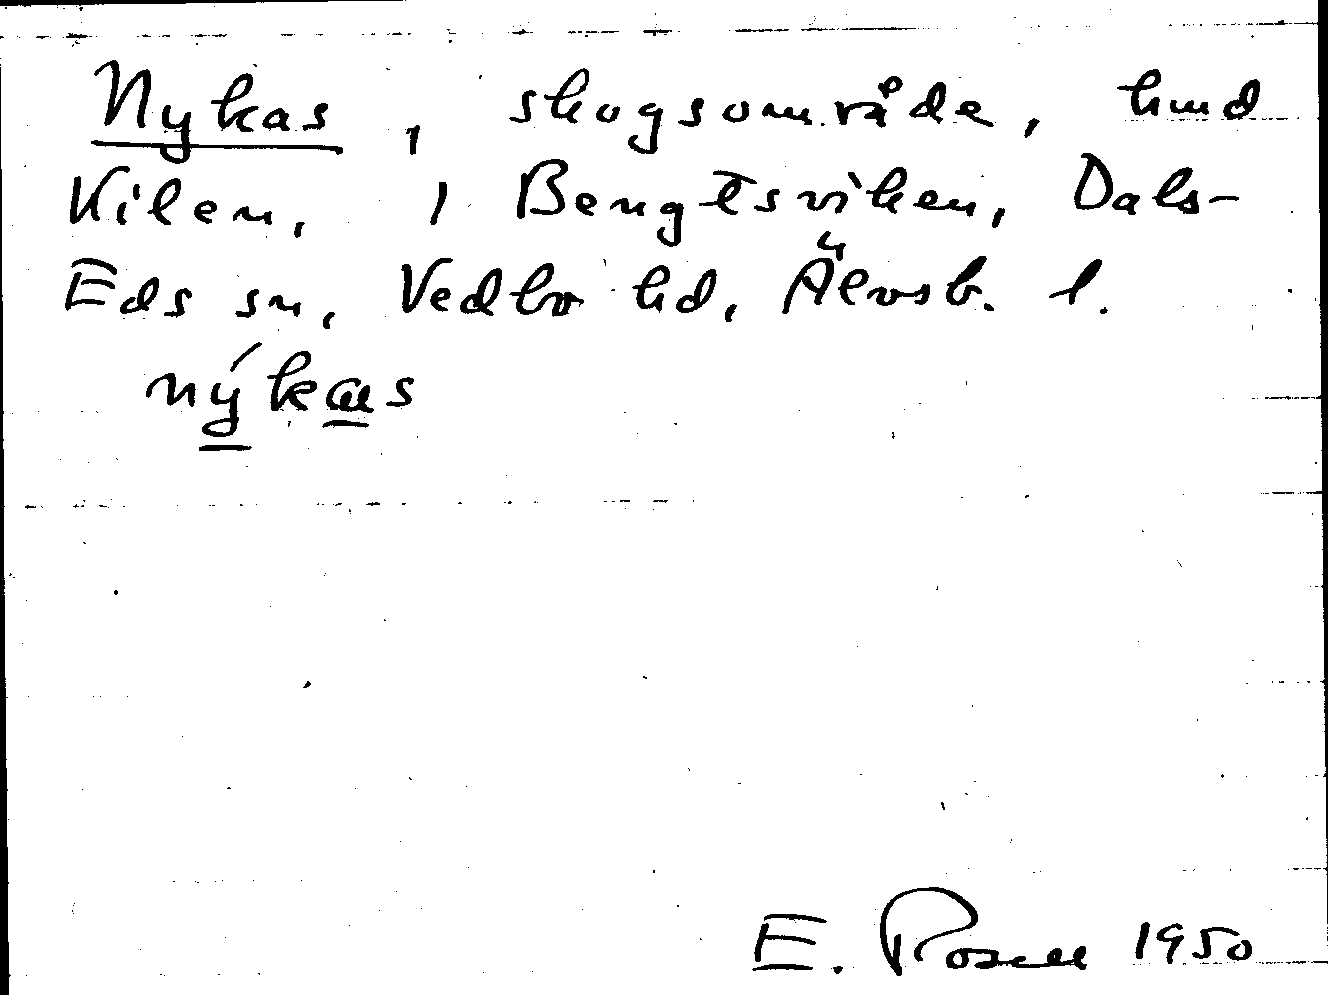 Nykas, skogsområde, hmd
Kilen, 1 Bengtsviken, Dals-
Eds sn, Vedbo hd, Älvsb. l.
nýkas
E. Rosell 1950